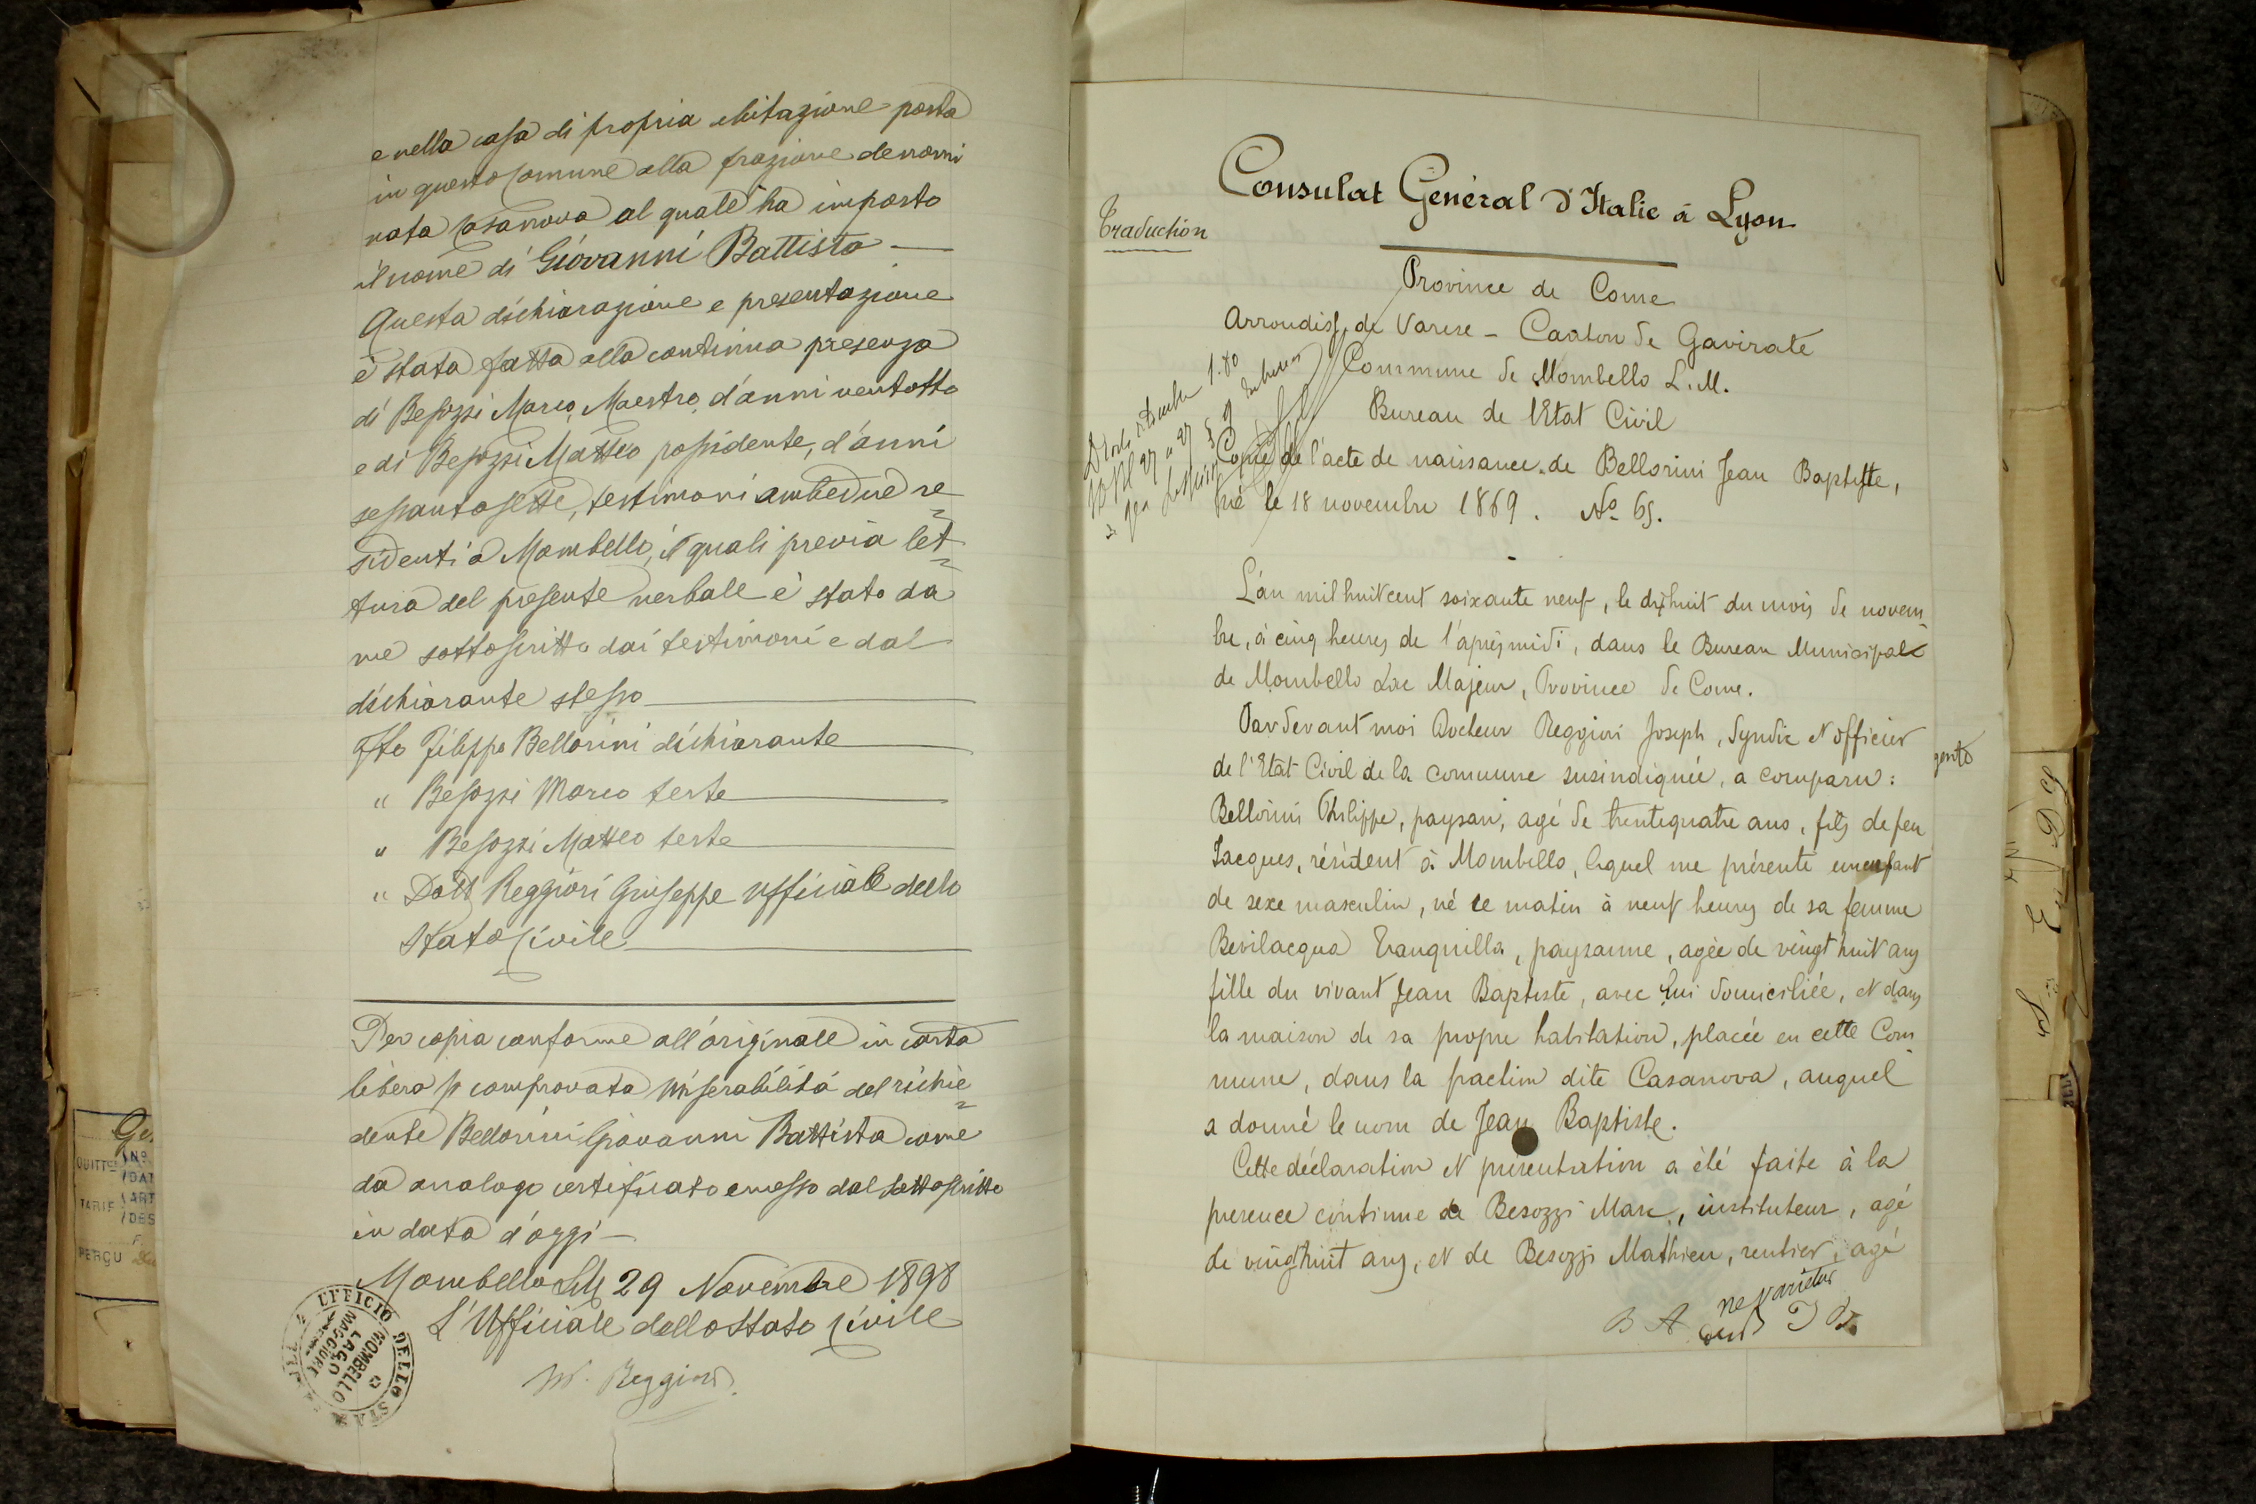 e nella casa di propria abitazione posta
in questo Comune alla frazione denomi
nata Casanova al quale ha imposto
il nome di Giovanni Battista —
Questa dichiarazione e presentazione
è stata fatta alla continua presenza
di Besozzi Marco, Maestro, d'anni ventotto
e di Besozzi Matteo possidente, d'anni
sessantasette, testimoni ambedue re=
sidenti a Mombello, i quali previa let=
tura del presente verbale è stato da
me sottoscritto dai testimoni e dal
dichiarante stesso
Fto Filippo Bellorini dichiarante
" Besozzi Marco teste
" Besozzi Matteo teste
" Dott Reggiori Giuseppe Ufficiale dello
Stato Civile
Per copia conforme all'originale in carta
libera p comprovata miserabilità del richie=
dente Bellorini Giovanni Battista come
da analogo certificato emesso dal sottoscritto
in data d'oggi —
Mombello LM 29 Novembre 1898
L'Ufficiale dello Stato Civile
Reggiori
UFFICIO DELLO STATO
MOMBELLO
LAGO
MAGGIORE
QUITTCE
No
DAT
TARIF
ART
DES
PERÇU
Traduction
Consulat Général d'Italie à Lyon
Province de Come
Arrondisst de Varese – Canton de Gavirate
Commune de Mombello L.M.
Bureau de l'Etat Civil
Copie de l'acte de naissance de Bellorini Jean Baptiste,
né le 18 novembre 1869. No 65.
1.80
L'an mil huit cent soixante neuf, le dixhuit du mois de novem-
bre, à cinq heures de l'après midi, dans le Bureau Municipal
de Mombello Lac Majeur, Province de Come.
Pardevant moi Docteur Reggiori Joseph, Syndic et officier
de l'Etat Civil de la commune susindiquée, a comparu:
Bellorini Philippe, paysan, agé de trentequatre ans, fils de feu
Jacques, résident à Mombello, lequel me présente un enfant
de sexe masculin, né ce matin à neuf heures de sa femme
Bevilacqua Tranquilla, paysanne, agée de vingt huit ans
fille du vivant Jean Baptiste, avec lui domiciliée, et dans
la maison de sa propre habitation, placée en cette Com
mune, dans la fraction dite Casanova, auquel
a donné le nom de Jean Baptiste.
Cette déclaration et présentation a été faite à la
presence continue de Besozzi Marc, instituteur, agé
de vingthuit ans, et de Besozzi Mathieu, rentier, agé
ne varietur